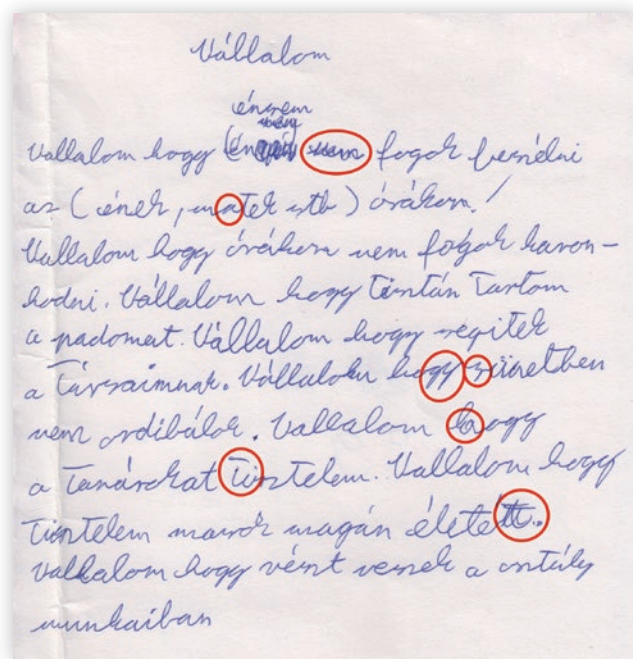 Vállalom
énrem
Vallalom hogy fogok beszélni
az (ének, matek stb) órákon!
Vallalom hogy órákon nem fogok haron-
kodni. Vállalom hogy tisztán tartom
a padomat. Vállalom hogy segitek
a társaimnak. Vállalom hogy szünetben
nem ordibálok. Vallalom hogy
a tanárokat tisztelem. Vallalom hogy
tisztelem mások magán életét.
Vallalom hogy részt veszek a osztály
munkaiban